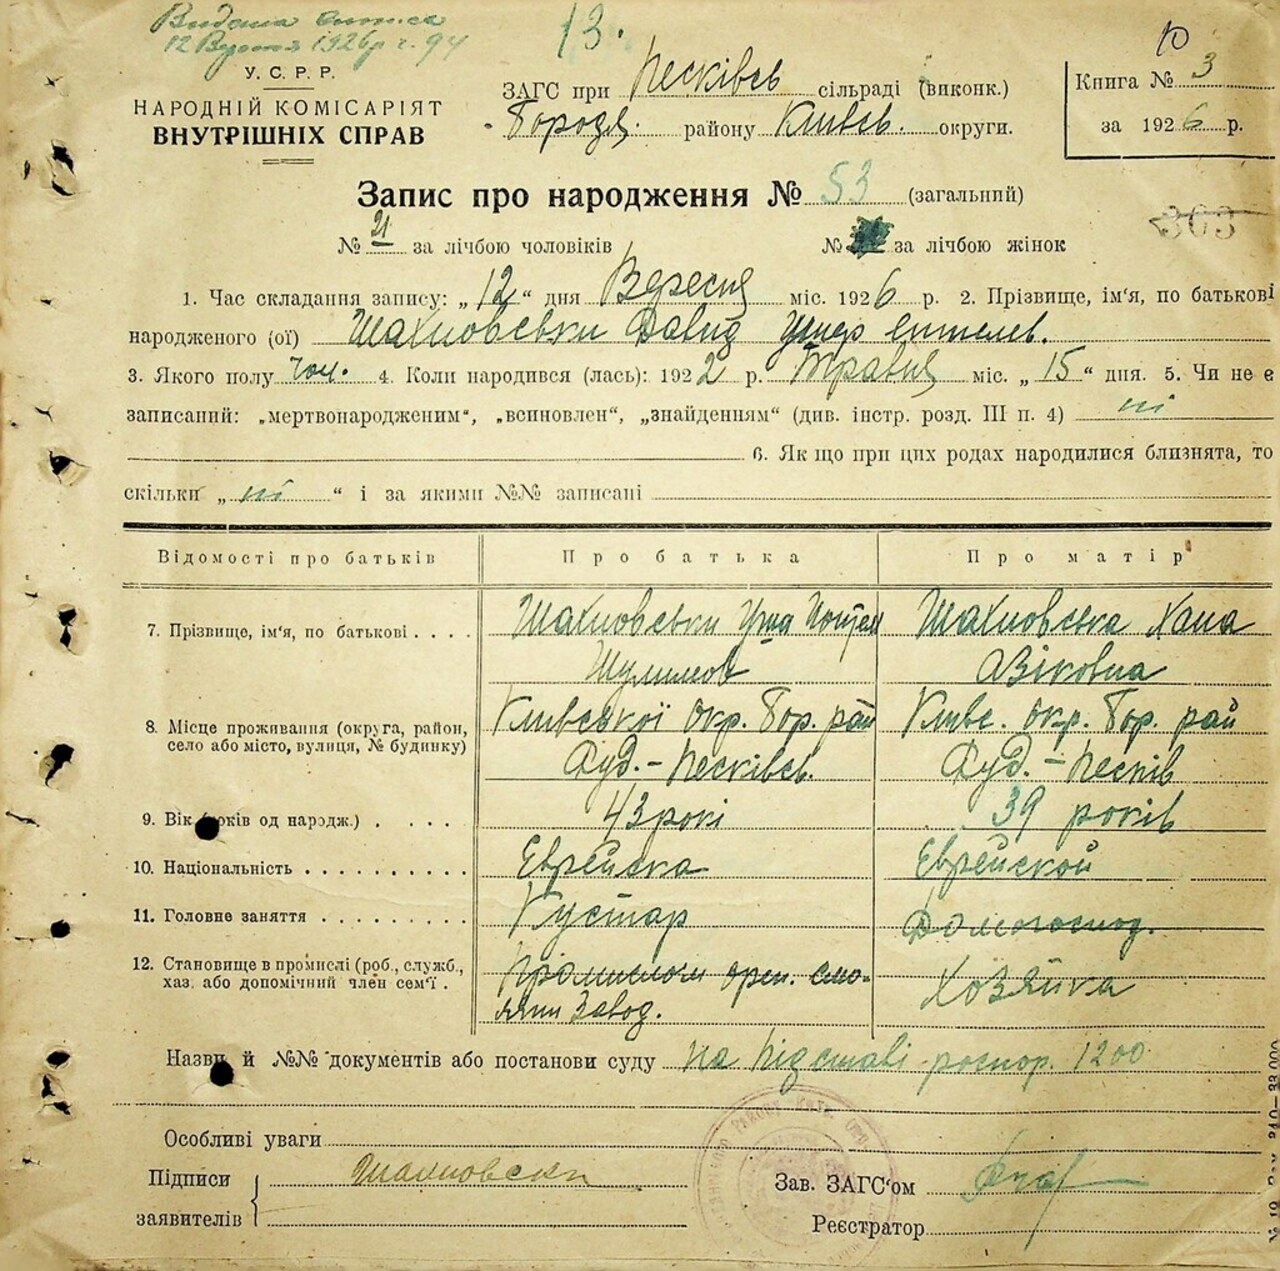 Видана виписка
12 Вересня 1926 р. г. 94
13.
У. С. Р. Р.
НАРОДНІЙ КОМІСАРІЯТ
ВНУТРІШНІХ СПРАВ
ЗАГС при Песківсь сільраді (виконк.)
Бородя. району Київсь. округи.
Книга № 3
за 1926 р.
Запис про народження № 53 (загальний)
303
№ 21 за лічбою чоловіків № за лічбою жінок
1. Час складання запису: „12“ дня Вересня міс. 1926 р. 2. Прізвище, ім'я, по батькові
народженого (ої) Шахновськи Давид Ушер
3. Якого полу чол. 4. Коли народився (лась): 1922 р. Травня міс. „15“ дня. 5. Чи не є
записаний: „мертвонародженим“, „всиновлен“, „знайденням“ (див. інстр. розд. III п. 4) ні
6. Якщо при цих родах народилися близнята, то
скільки „ні“ і за якими №№ записані
Відомості про батьків Про батька Про матір
7. Прізвище, ім'я, по батькові Шахновськи Шахновська Хана
Шулимов Азіковна
8. Місце проживання (округа, район, село або місто, вулиця, № будинку) Київської Окр. Бор. рай Київс. окр. Бор. рай
Буд.-Песківсь. Буд.-Песків
9. Вік (років од народж.) 43 рокі 39 років
10. Національність Еврейска Еврейской
11. Головне заняття Кустар Домогоспод.
12. Становище в промислі (роб., служб., хаз. або допомічний член сем'ї. Промислом орен. смо- Хозяйка
ляни Завод.
Назви й №№ документів або постанови суду На підставі роспор. 1200
Особливі уваги
Підписи Шахновски Зав. ЗАГС'ом
заявителів Реєстратор